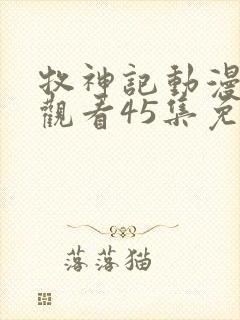 牧神記動漫
觀看45集免
落落猫